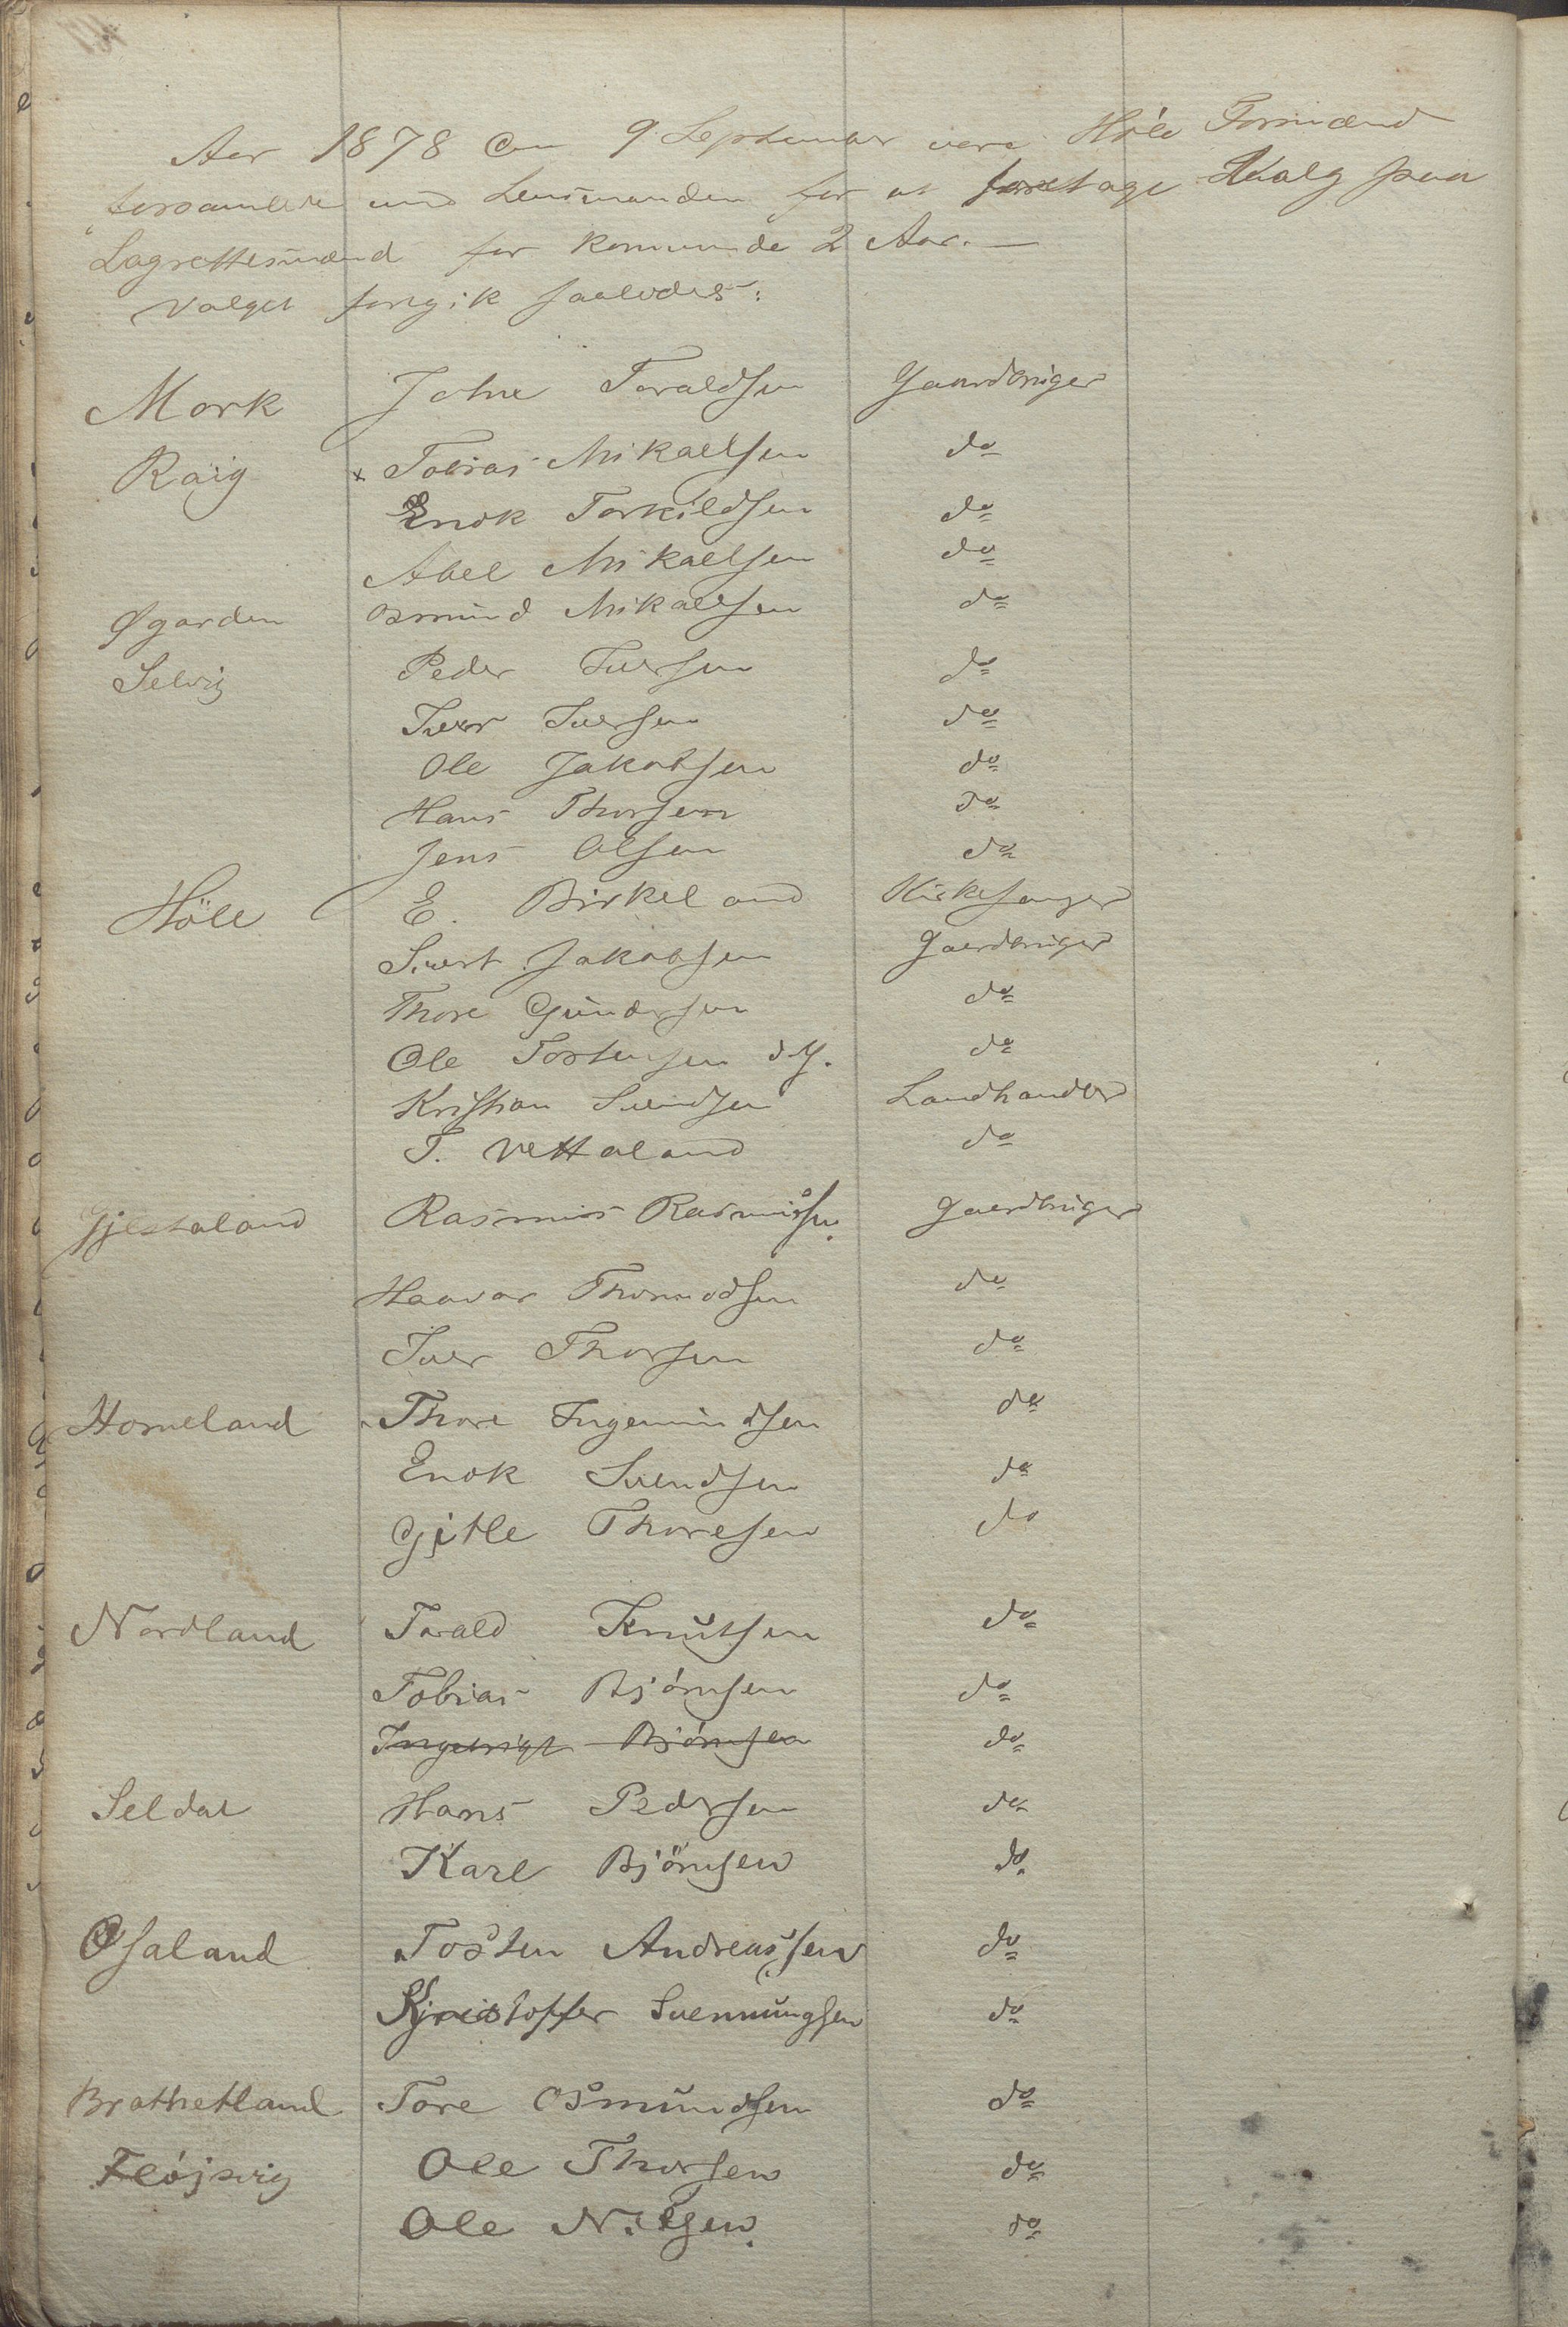 Aar 1878 den 9 September vare Höle Formænd
forsamlede med Lensmanden for at foretage Valg paa
Lagrettesmænd for kommende 2 Aar. —
Valget foregik saaledes:
Mork John Toraldsen Gaardbruger
Raig x Tobias Mikaelsen do
Enok Torkildsen do
Abel Mikaelsen do
Øgarden Osmund Mikaelsen do
Selvig Peder Iversen do
Iver Iversen do
Ole Jakobsen do
Hans Thorsen do
Jens Olsen do
Höle E. Birkeland Kirkesanger
Sivert Jakobsen Gaardbruger
Thore Gundersen do
Ole Tostensen d.y. do
Kristian Svendsen Landhandler
T. Vettaland do
Gjestaland Rasmus Rasmussen. Gaardbruger
Haavar Thormodsen do
Iver Thorsen do
Homeland Thore Ingemundsen do
Enok Svendsen do
Gitle Thoresen do
Nordland Torald Knutsen do
Tobias Bjórnsen do
Ingebrigt Bjórnsen do
Seldal Hans Pedersen do
Karl Björnsen do
Osaland Tosten Andreassen do
Kristoffer Svennungsen do
Brathetland Tore Osmundsen do
Fløjsvig Ole Thorsen do
Ole Nilsen. do